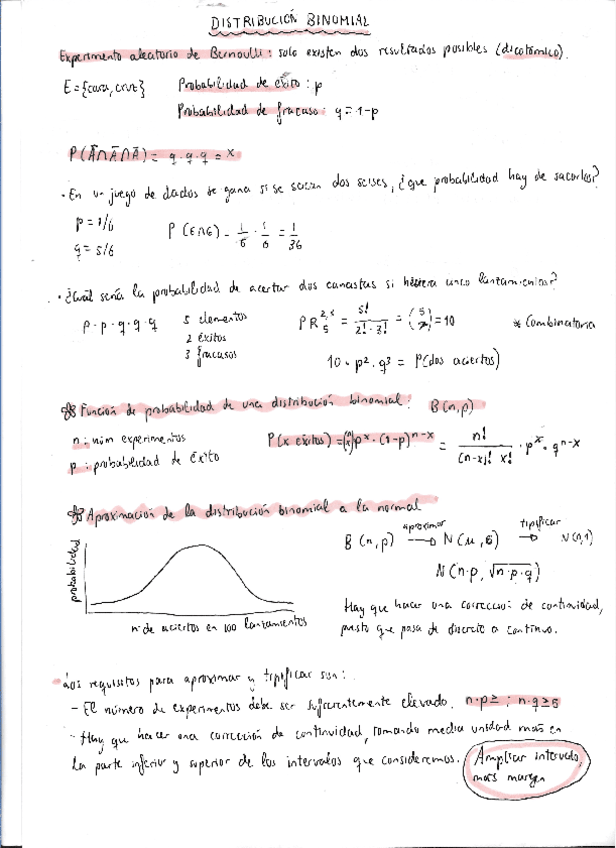 DISTRIBUCIÓN BINOMIAL
Experimento aleatorio de Bernoulli: solo existen dos resultados posibles (dicotómico).
E={cara, cruz} Probabilidad de éxito: p
Probabilidad de fracaso: q=1-p
P(Ā∩Ā∩Ā) = q·q·q = x
· En un juego de dados se gana si se sacan dos seises, ¿que probabilidad hay de sacarlos?
p=1/6 P(E∩E) = 1/6 · 1/6 = 1/36
q=5/6
· ¿Cuál sería la probabilidad de acertar dos canastas si hiciera cinco lanzamientos?
p·p·q·q·q 5 elementos PR 2,3 5 = 5!/2!·3! = (5 2) = 10 * Combinatoria
2 éxitos
3 fracasos 10·p²·q³ = P(dos aciertos)
Función de probabilidad de una distribución binomial: B(n,p)
n: núm experimentos P(x éxitos) = (n x) p^x · (1-p)^n-x = n!/(n-x)! x! · p^x · q^n-x
p: probabilidad de éxito
Aproximación de la distribución binomial a la normal
B(n,p) aproximar → N(μ,σ) tipificar → N(0,1)
N(n·p, √n·p·q)
probabilidad
nº de aciertos en 100 lanzamientos
Hay que hacer una corrección de continuidad,
puesto que pasa de discreto a continuo.
· Los requisitos para aproximar y tipificar son:
- El número de experimentos debe ser suficientemente elevado. n·p≥ ; n·q≥5
- Hay que hacer una corrección de continuidad, tomando media unidad más en
la parte inferior y superior de los intervalos que consideremos. Ampliar intervalo,
más margen